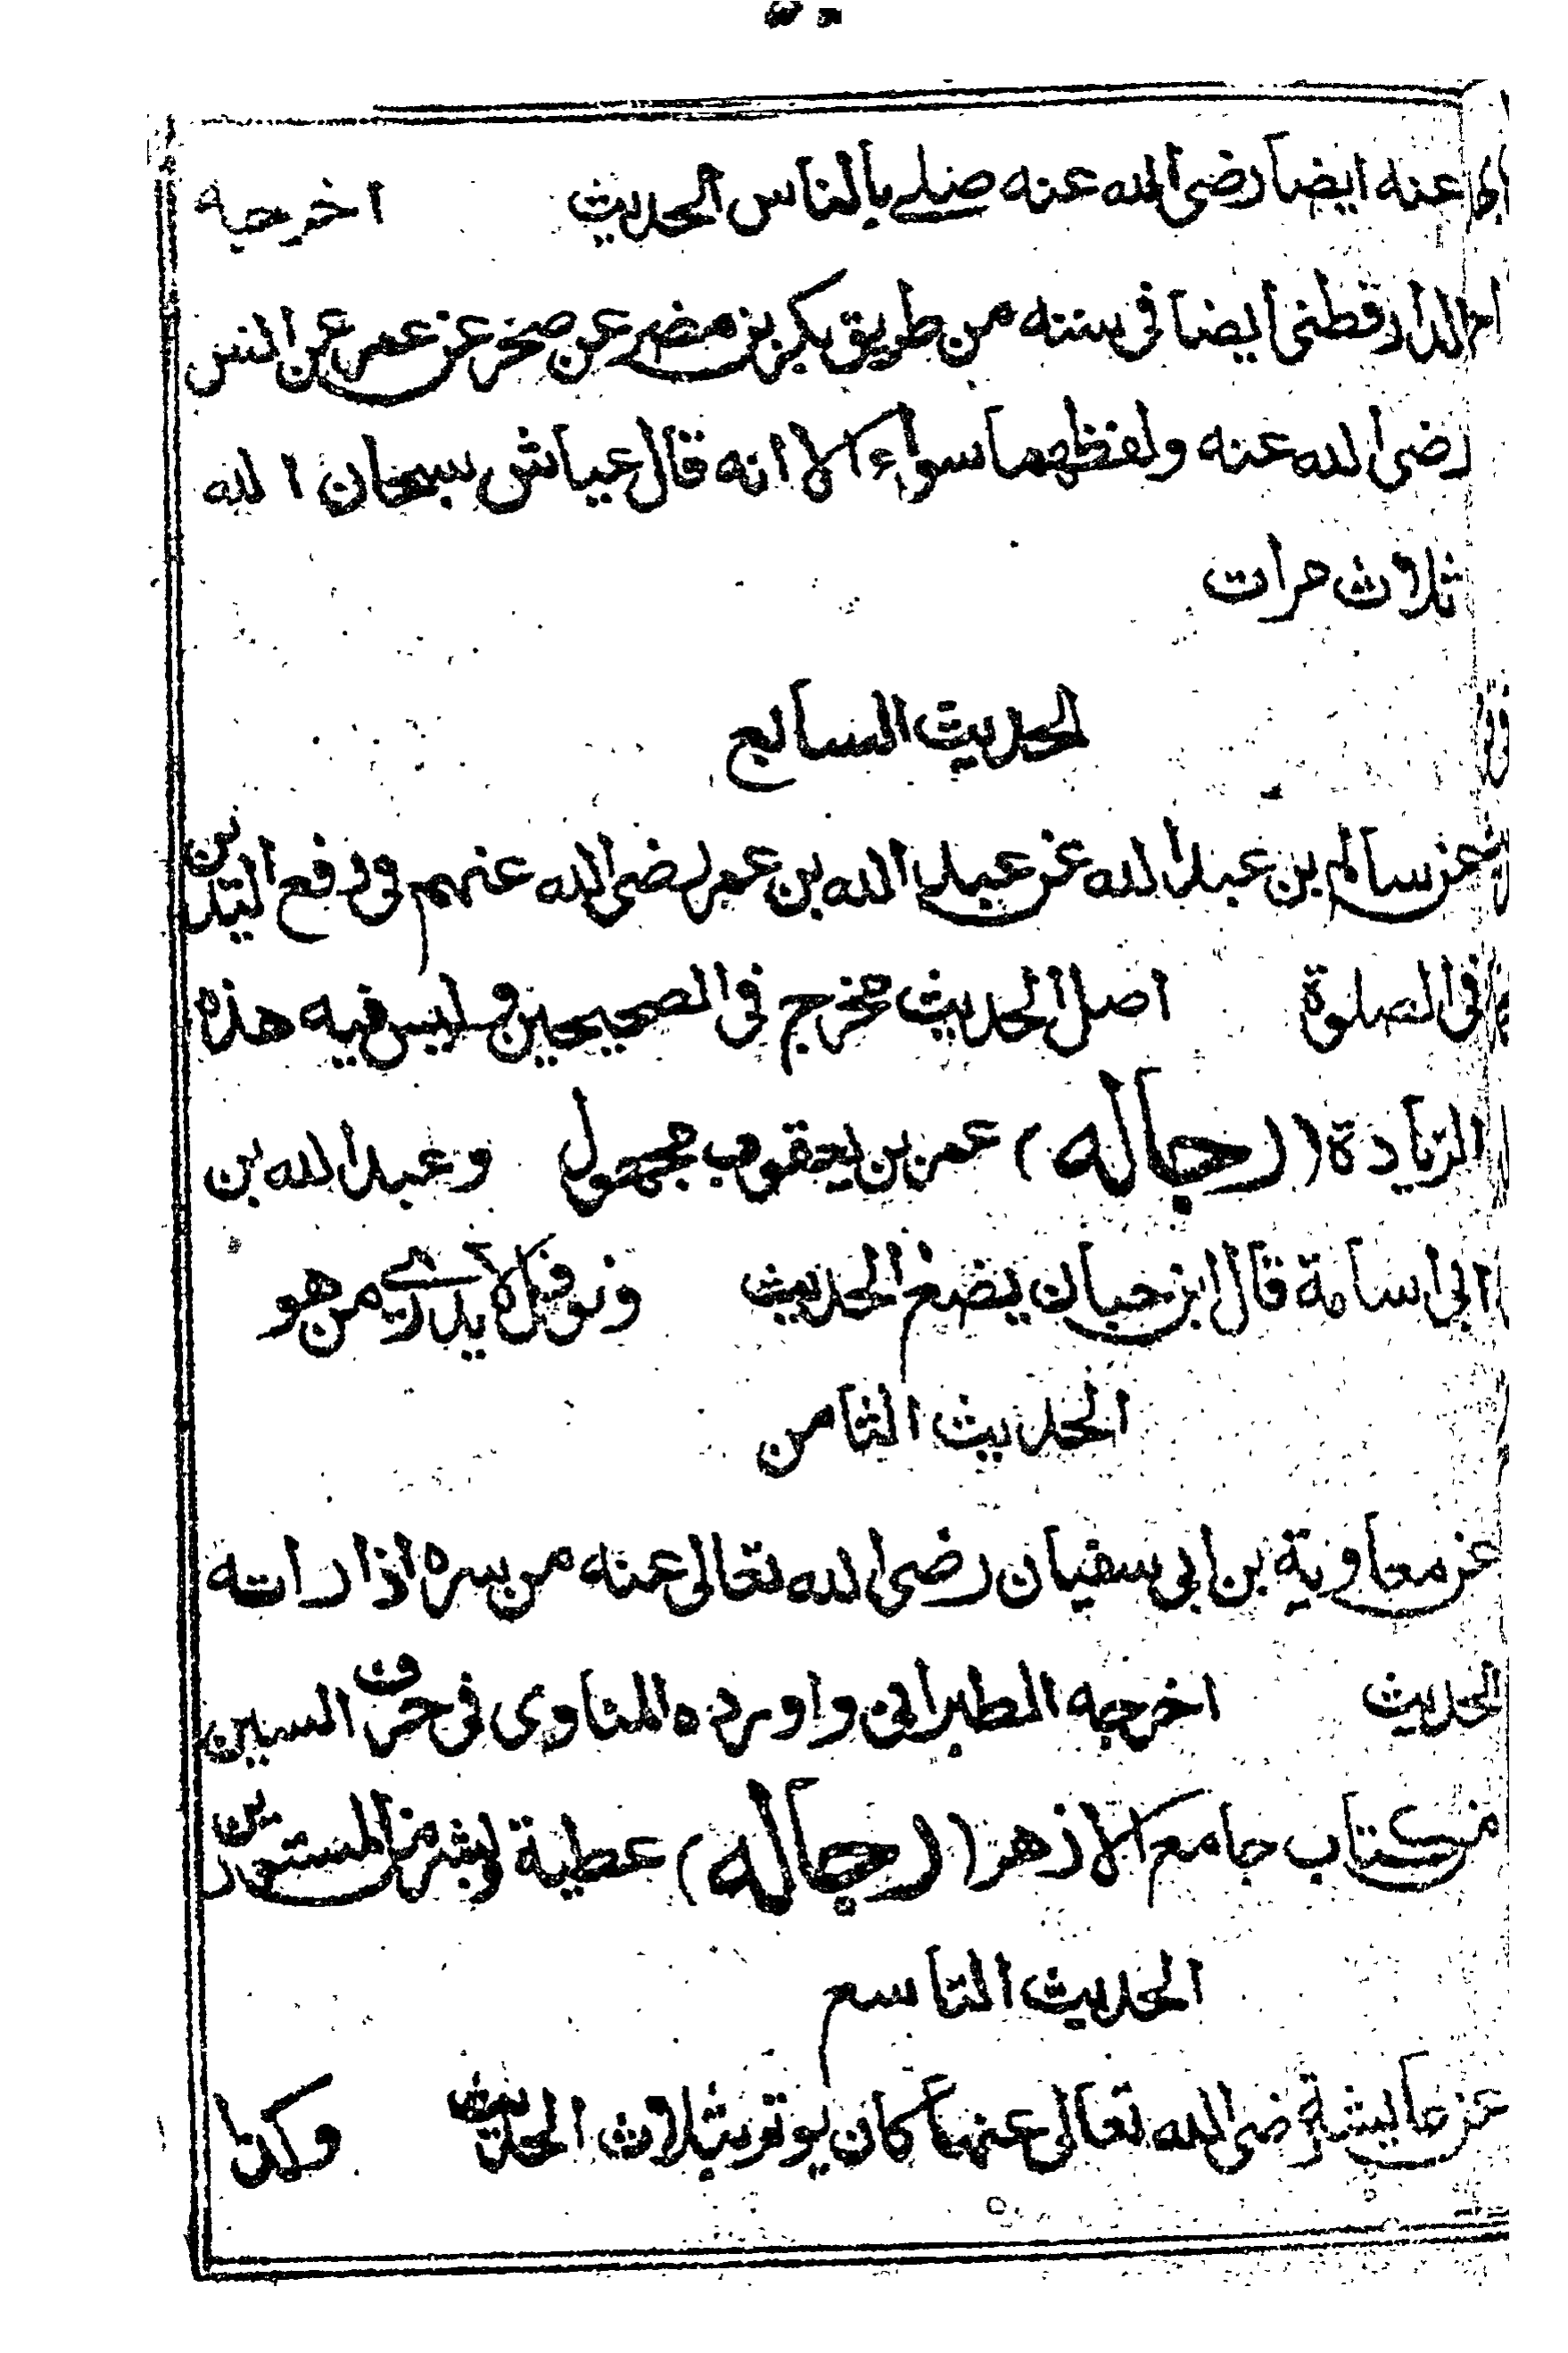 عنه ايضا رضى الله عنه صلے بالناس الحديث اخرجه
الدارقطنى ايضا فى سننه من طريق بكر بن مضر عن صخر عن عمر عن انس
رضى الله عنه ولفظهما سواء الا انه قال عياش سبحان الله
ثلاث مرات
الحديث السابع
عن سالم بن عبد الله عن عبد الله بن عمر رضى الله عنهم فى رفع اليدين
فى الصلوة اصل الحديث مخرج فى الصحيحين وليس فيه هذه
الزيادة (رجاله) عمر بن يعقوب مجهول وعبد الله بن
ابى اسامة قال ابن حبان يضع الحديث ونوفل لا يدرے من هو
الحديث الثامن
عن معاوية بن ابى سفيان رضى الله تعالى عنه من سره اذا راته
الحديث اخرجه الطبرانى واورده المناوى فى حرف السين
من كتاب جامع الازهر (رجاله) عطية وبشر من المستورين
الحديث التاسع
عن عايشة رضى الله تعالى عنها كان يوتر بثلاث الحديث وكذا